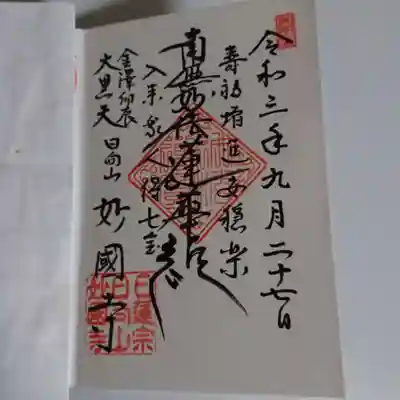 令和三年九月二十七日
壽福増進 安穏楽
南無妙法蓮華経
入来衆人得七宝
金澤卯辰
大黒天 日向山 妙國寺
日蓮宗
日向山
妙國寺